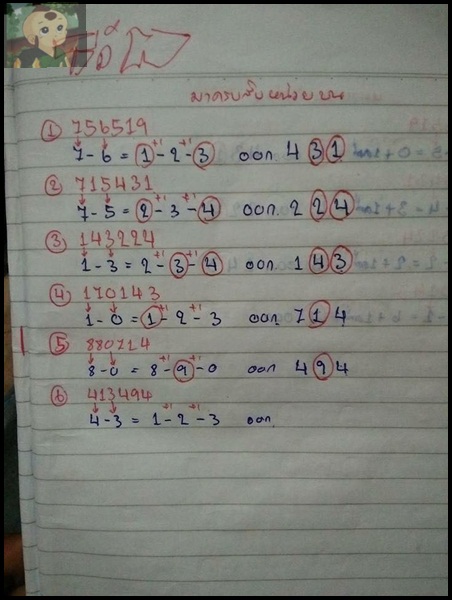 มาครบสิบหน่วยบน
① 756519
7-6 = 1 +1 - 2 +1 - 3 ออก 4 3 1
② 715431
7-5 = 2 +1 - 3 +1 - 4 ออก. 2 2 4
③ 143224
1-3 = 2 - 3 - 4 ออก 1 4 3
④ 170143
1-0 = 1 +1 - 2 +1 - 3 ออก 7 1 4
⑤ 880714
8-0 = 8 +1 - 9 +1 - 0 ออก 4 9 4
⑥ 413494
4-3 = 1 +1 - 2 +1 - 3 ออก